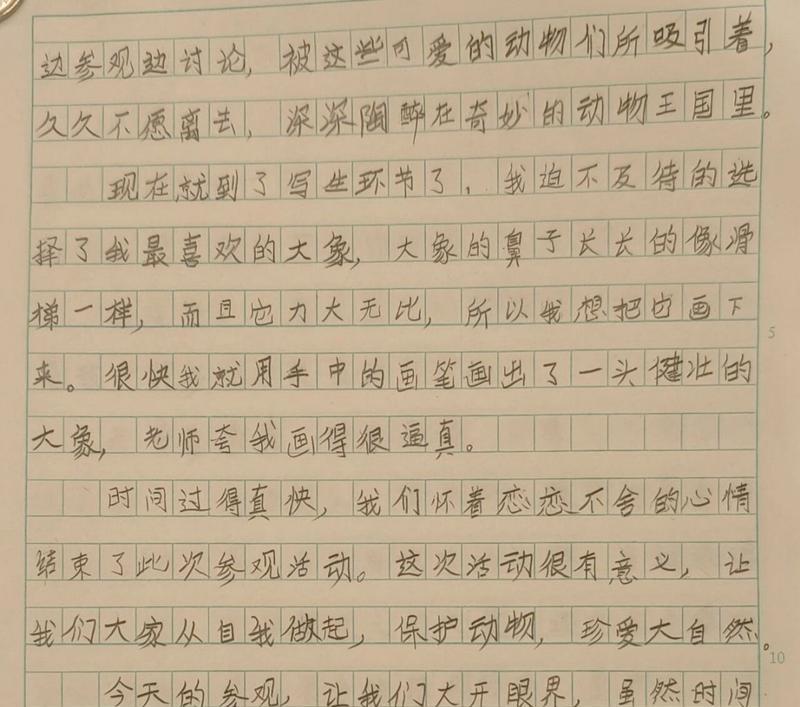 边参观边讨论，被这些可爱的动物们所吸引着，
久久不愿离去，深深陶醉在奇妙的动物王国里。
现在就到了写生环节了，我迫不及待的选
择了我最喜欢的大象，大象的鼻子长长的像滑
梯一样，而且它力大无比，所以我想把它画下
来。很快我就用手中的画笔画出了一头健壮的
大象，老师夸我画得很逼真。
时间过得真快，我们怀着恋恋不舍的心情
结束了此次参观活动。这次活动很有意义，让
我们大家从自我做起，保护动物，珍爱大自然。
今天的参观，让我们大开眼界，虽然时间
5
10